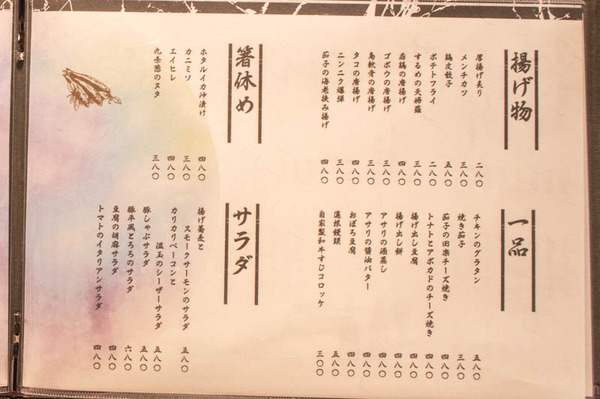 揚げ物
厚揚げ炙り 二八〇
メンチカツ 三八〇
鶏皮餃子 五八〇
ポテトフライ 二八〇
するめの天婦羅 三八〇
若鶏の唐揚げ 四八〇
ゴボウの唐揚げ 三八〇
鳥軟骨の唐揚げ 三八〇
タコの唐揚げ 四八〇
ニンニク爆弾 三八〇
茄子の海老挟み揚げ 四八〇
箸休め
ホタルイカ沖漬け 四八〇
カニミソ 三八〇
エイヒレ 四八〇
九条葱のヌタ 三八〇
一品
チキンのグラタン 五八〇
焼き茄子 三八〇
茄子の田楽チーズ焼き 四八〇
トマトとアボカドのチーズ焼き 四八〇
揚げ出し豆腐 四八〇
揚げ出し餅 四八〇
アサリの酒蒸し 四八〇
アサリの醤油バター 四八〇
おぼろ豆腐 四八〇
蓮根饅頭 五八〇
自家製和牛すじコロッケ 三〇〇
サラダ
揚げ蕎麦と
スモークサーモンのサラダ 五八〇
カリカリベーコンと
温玉のシーザーサラダ 五八〇
豚しゃぶサラダ 五八〇
豚平風とろろのサラダ 六八〇
豆腐の胡麻サラダ 四八〇
トマトのイタリアンサラダ 四八〇